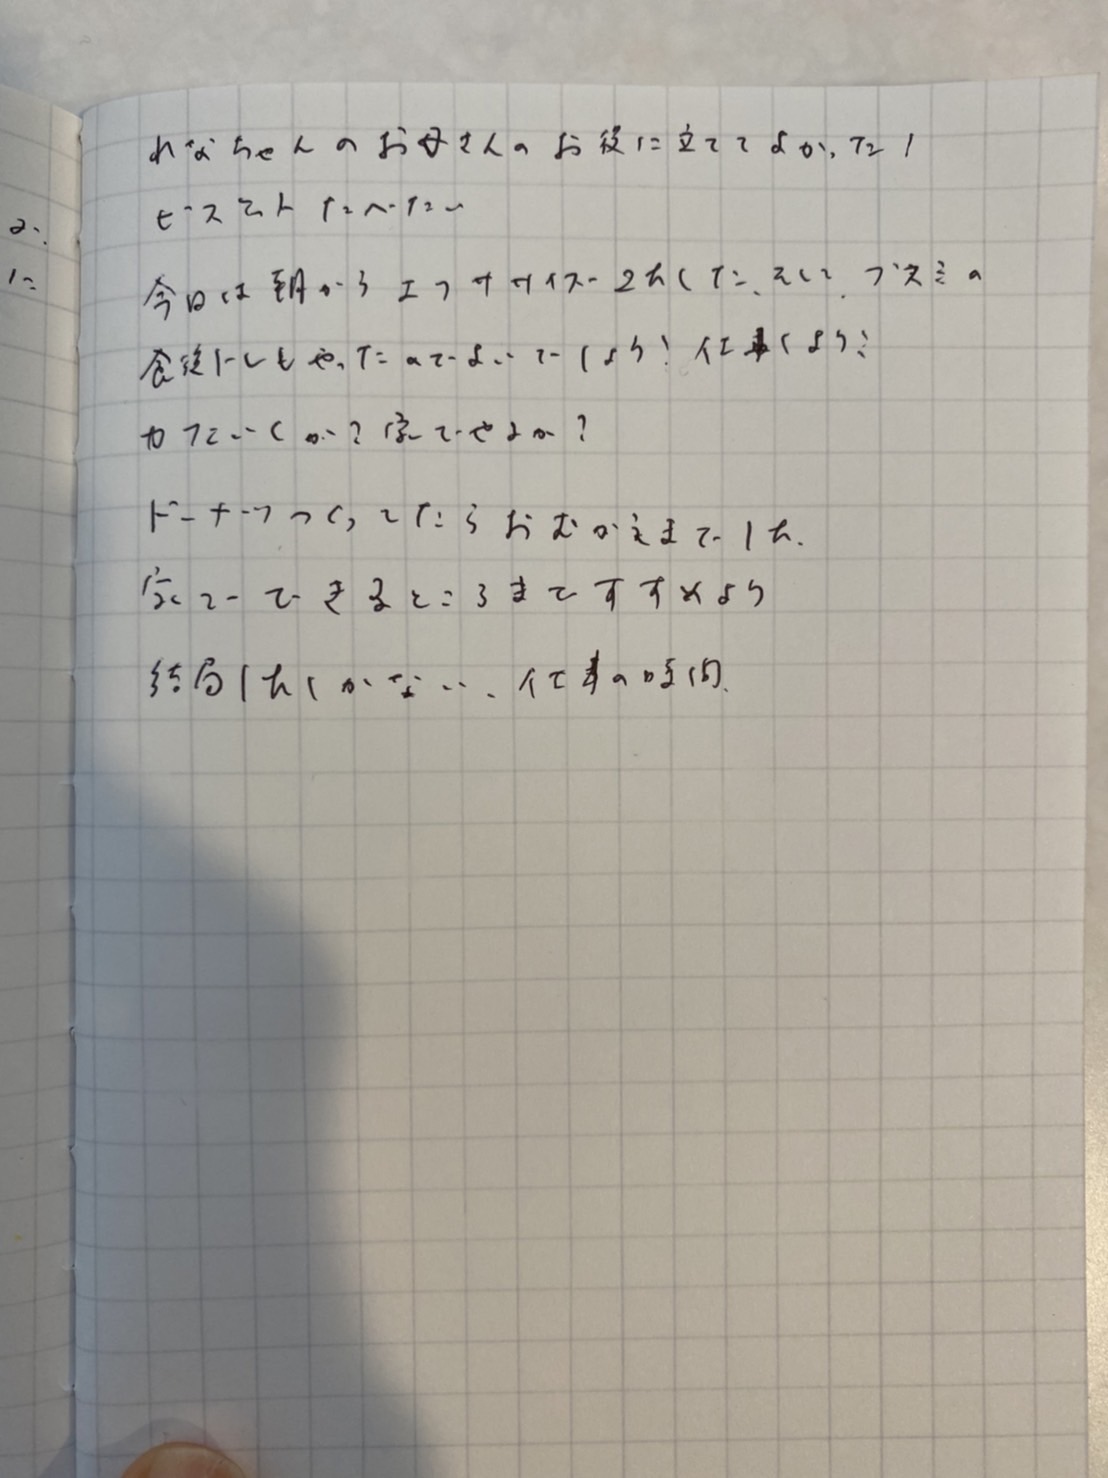 れなちゃんのお母さんのお役に立ててよかった！
ビスコット たべたい
今日は朝からエクササイズ2hした、そして、
食後トレもやったのでよいでしょう！仕事しよう！
カフェいくか？家でやるか？
ドーナツつくってたらおむかえまで1h.
家でできるところまですすめよう
結局1hしかない、仕事の時間.
2.
に